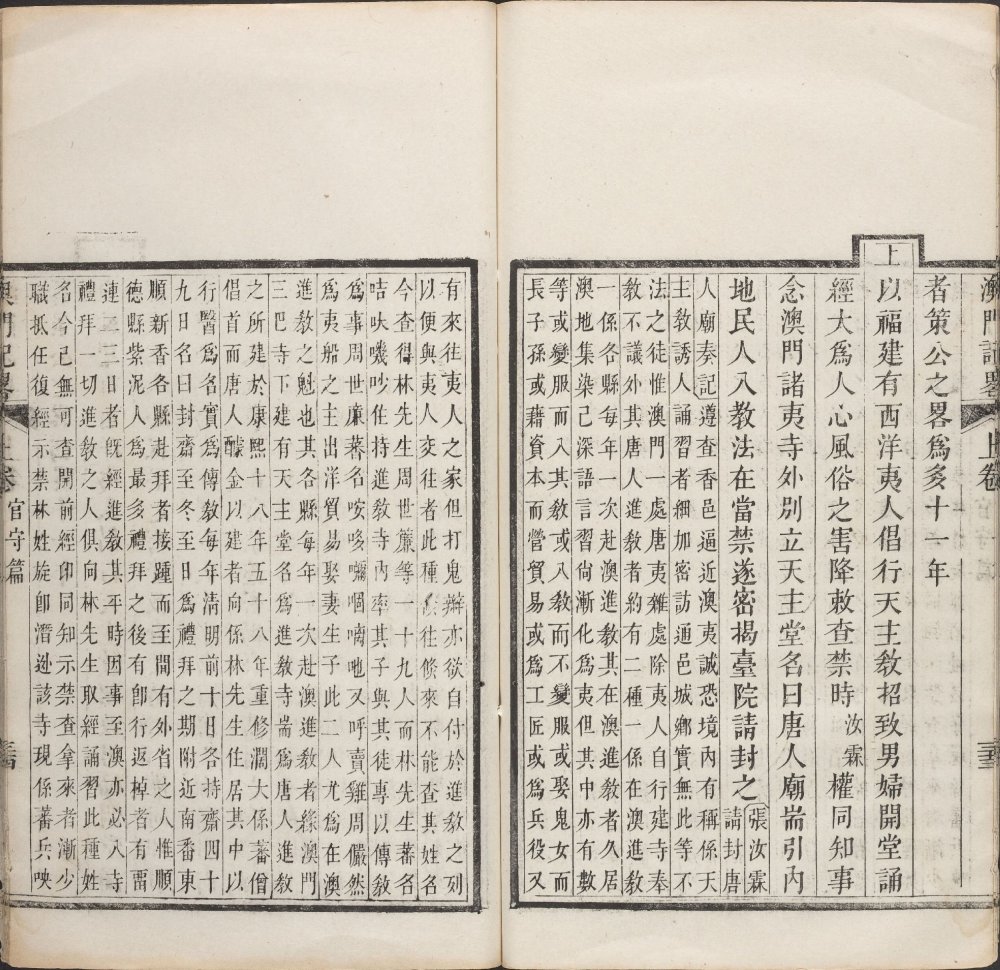 澳門記畧
上卷
者策公之畧爲多十一年
上以福建有西洋夷人倡行天主敎招致男婦開堂誦
經大爲人心風俗之害降敕查禁時汝霖權同知事
念澳門諸夷寺外別立天主堂名曰唐人廟耑引內
地民人入教法在當禁遂密揭臺院請封之張汝霖請封唐
人廟奏記遵查香邑逼近澳夷誠恐境內有稱係天
主敎誘人誦習者細加密訪通邑城鄉實無此等不
法之徒惟澳門一處唐夷雜處除夷人自行建寺奉
敎不議外其唐人進敎者約有二種一係在澳進敎
一係各縣每年一次赴澳進敎其在澳進敎者久居
澳地集染已深語言習尚漸化爲夷但其中亦有數
等或變服而入其敎或入敎而不變服或娶鬼女而
長子孫或藉資本而營貿易或爲工匠或爲兵役又
有來往夷人之家但打鬼辮亦欲自付於進敎之列
以便與夷人交往者此種往倐來不能查其姓名
今查得林先生周世廉等一十九人而林先生蕃名
咭吠嘰吵住持進敎寺內率其子與其徒專以傳敎
爲事周世廉蕃名哆嚹又呼賣雞周儼然
爲夷船之主出洋貿易娶妻生子此二人尤爲在澳
進敎之魁也其各縣每年一次赴澳進敎者緣澳門
三巴寺下建有天主堂名爲進敎寺耑爲唐人進敎
之所建於康熙十八年五十八年重修濶大係蕃僧
倡首而唐人醵金以建者向係林先生住居其中以
行醫爲名實爲傳敎每年淸明前十日各持齋四十
九日名曰封齋至冬至日爲禮拜之期附近南番東
順新香各縣赴拜者接踵而至間有外省之人惟順
德縣紫泥人爲最多禮拜之後有卽行返棹者有畱
連二三日者旣經進敎其平時因事至澳亦必入寺
禮拜一切進敎之人俱向林先生取經誦習此種姓
名今已無可查開前經印同知示禁查拿來者漸少
職抵任復經示禁林姓旋卽潛逊該寺現係蕃兵映
澳門記畧
上卷
官守篇